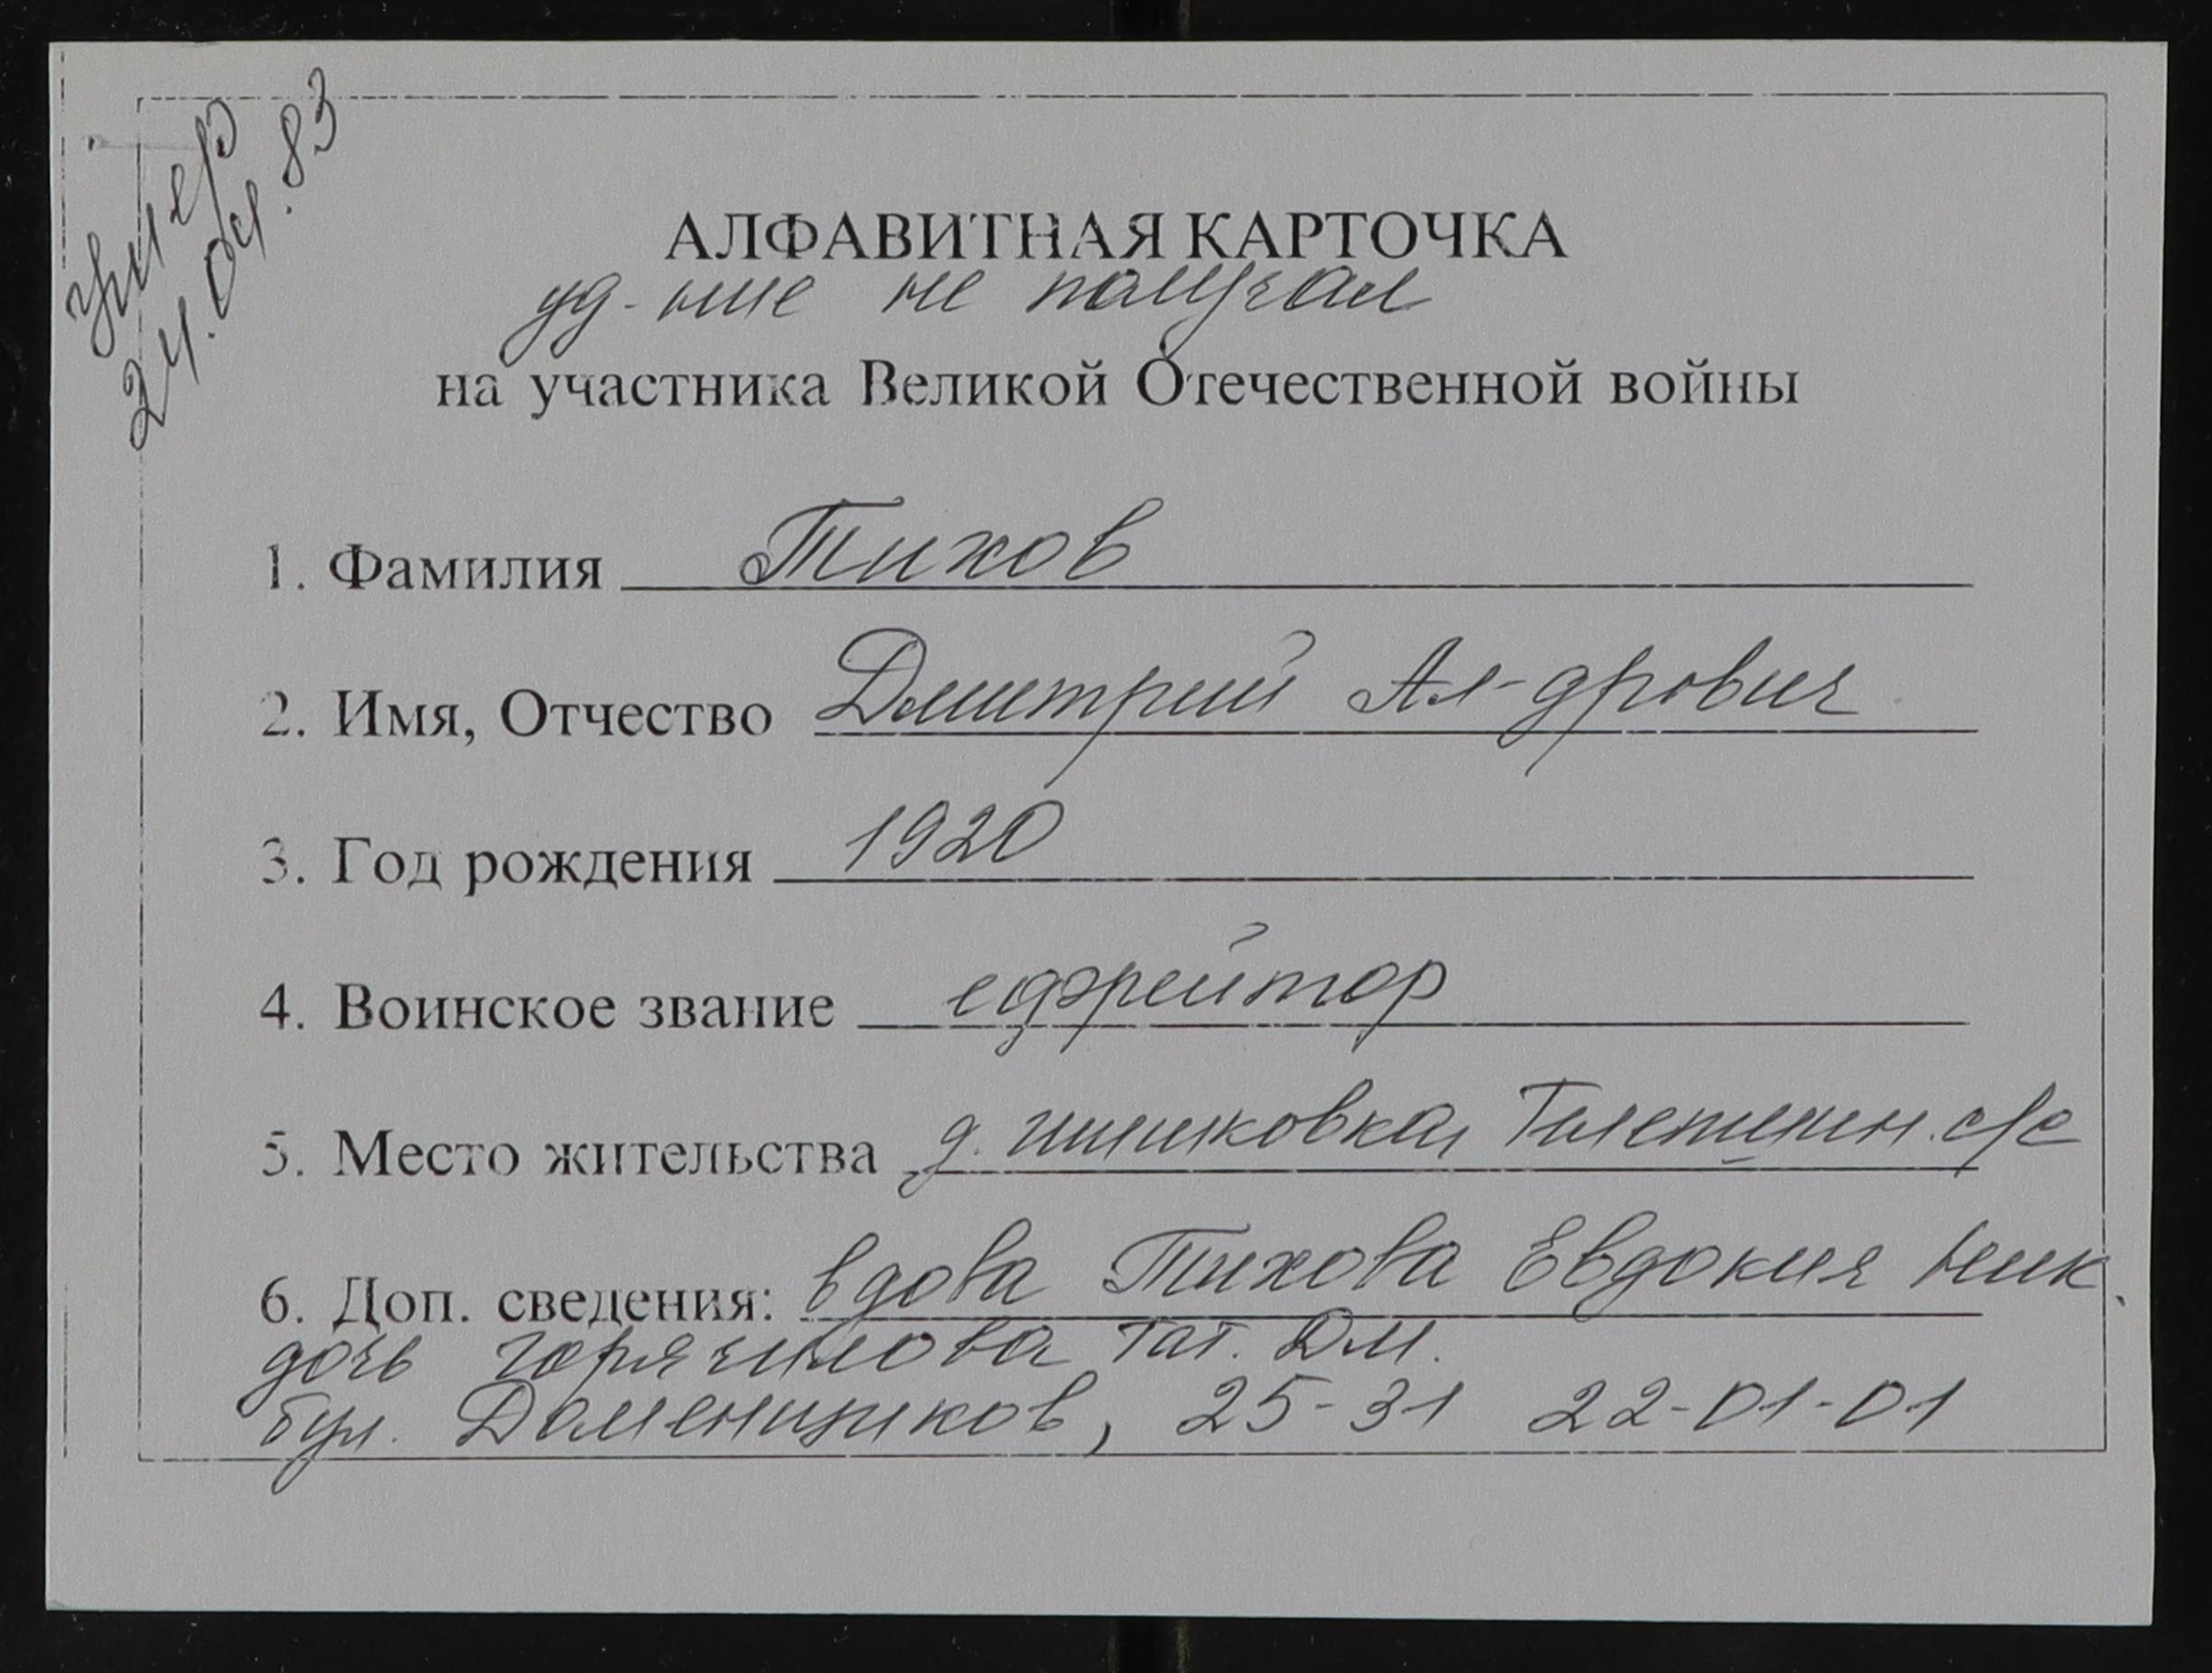 умер
24.04.83
АЛФАВИТНАЯ КАРТОЧКА
уд-ние не получал
на участника Великой Отечественной войны
1. Фамилия Тихов
2. Имя, Отчество Дмитрий Ал-дрович
3. Год рождения 1920
4. Воинское звание ефрейтор
5. Место жительства д. Шишковка, с/с
6. Доп. сведения: вдова Тихова Евдокия Ник.
дочь Горячилова Тат. Дм.
бул. Доменщиков, 25-31 22-01-01